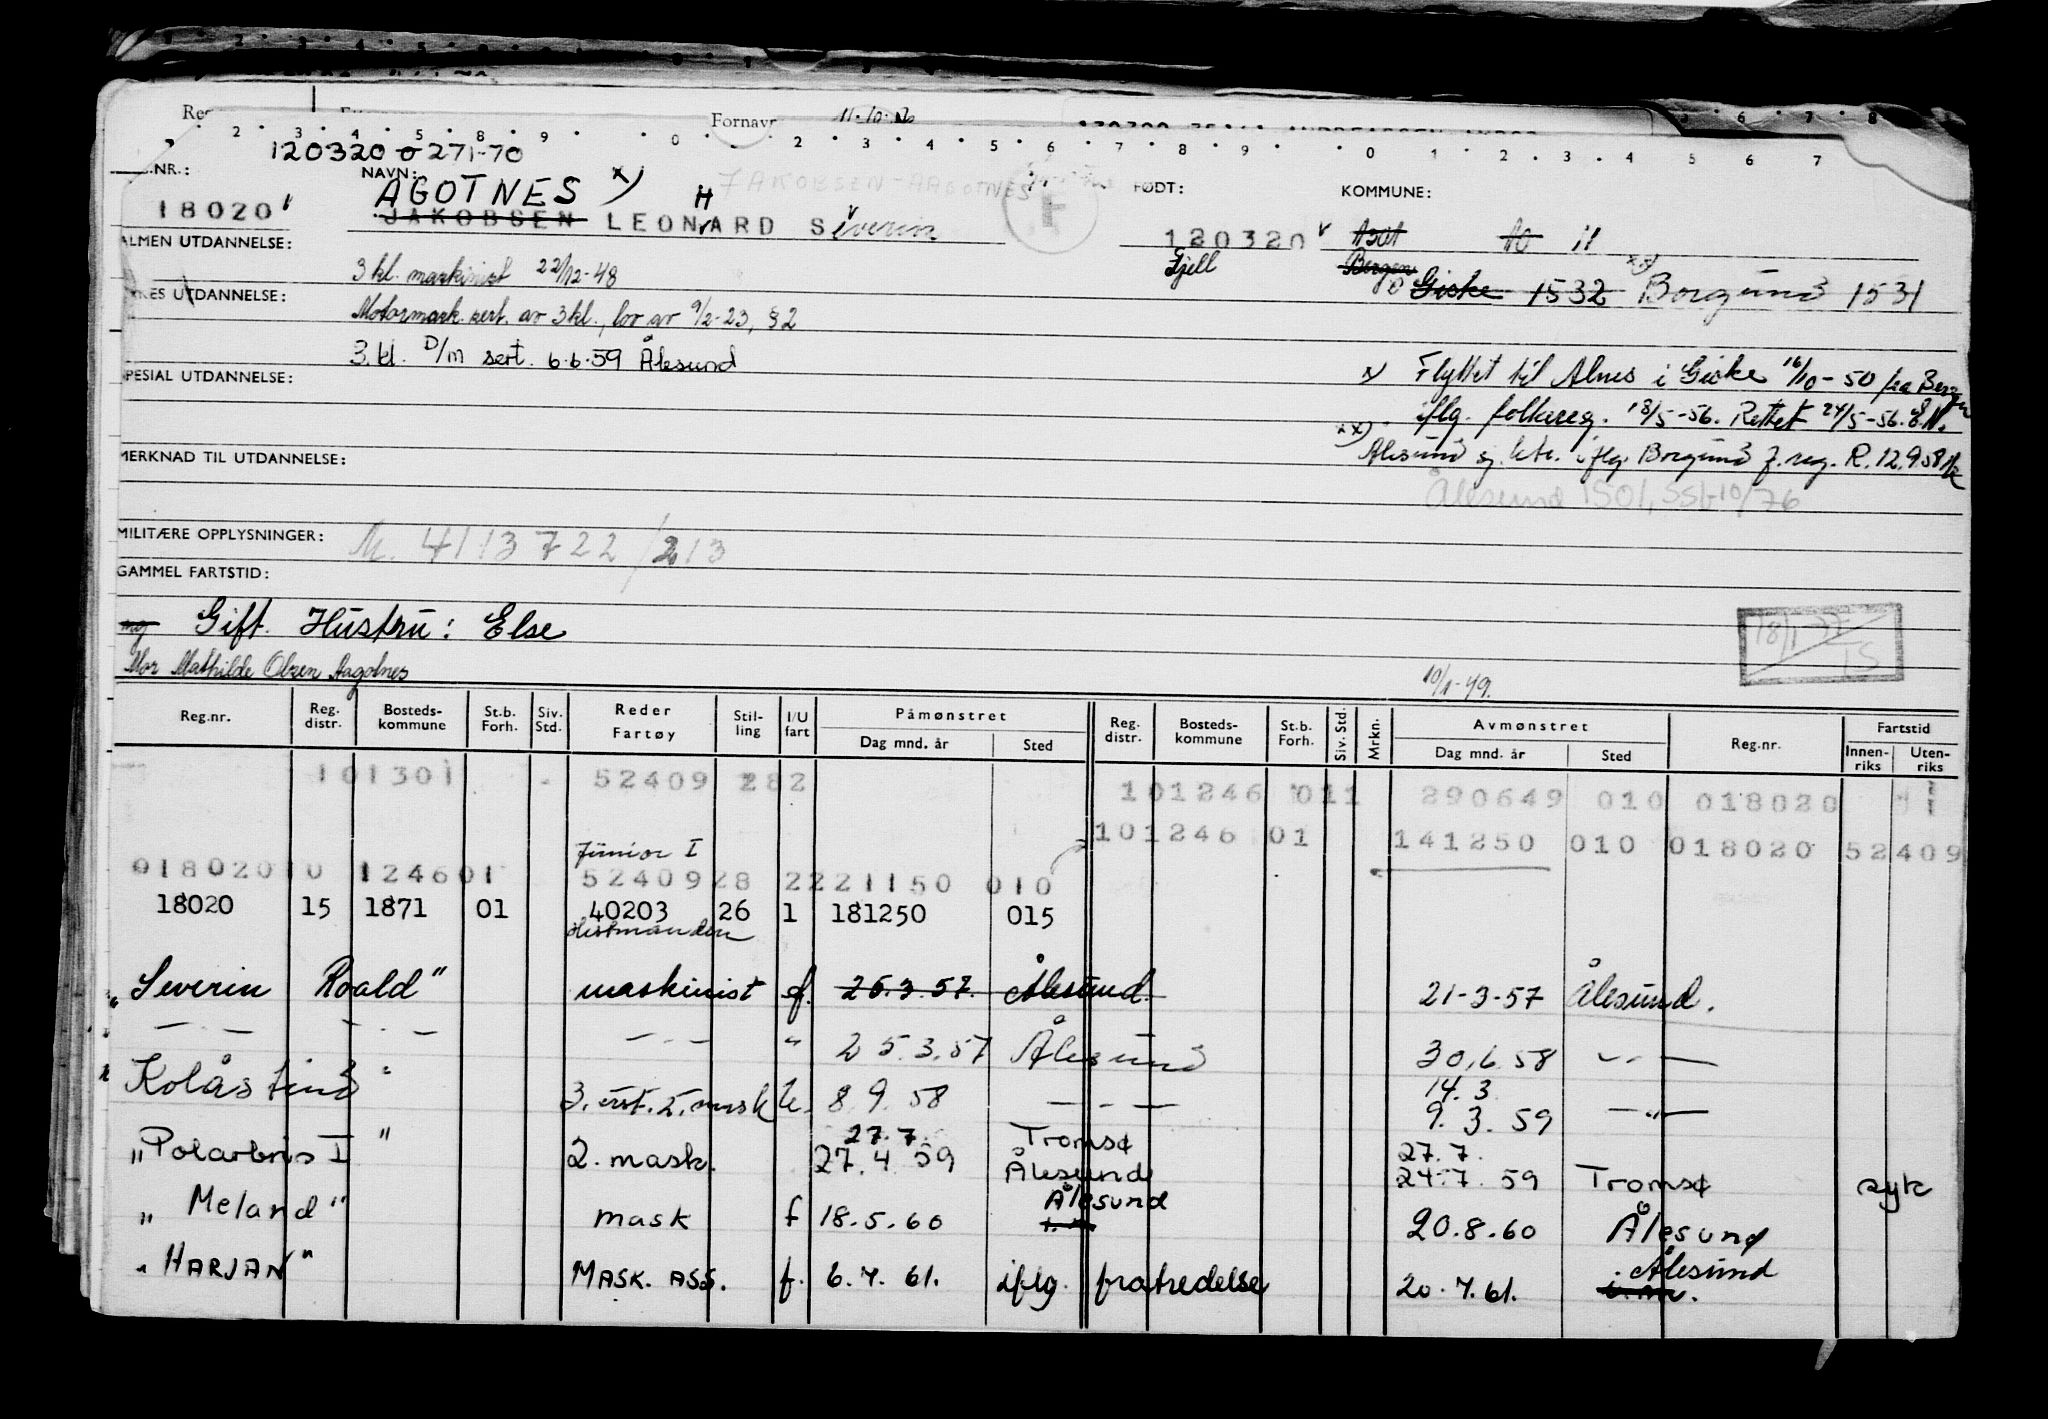 Fornavn 11.10.
120320 ø 271-70
NR.: NAVN: FØDT: KOMMUNE:
AGOTNES x) JAKOBSEN-AAGOTNES
18020 JAKOBSEN LEONHARD Severin 120320 1301 10 11
Fjell Bergen
ALMEN UTDANNELSE: 3 kl. maskinist 22/12-48
Giske 1532 xx) Borgund 1531
UTDANNELSE: Motormask. sert. av 3 kl., lov av 9/2-23, § 2
3. kl. D/m sert. 6.6.59 Ålesund
SPESIAL UTDANNELSE:
x) Flyttet til Alnes i Giske 16/10-50 fra Bergen
iflg. folkereg. 18/5-56. Rettet 24/5-56.
MERKNAD TIL UTDANNELSE:
xx) Ålesund sj. ktr. iflg. Borgund f. reg. R. 12.9.58
Ålesund 1501, 10/76
MILITÆRE OPPLYSNINGER: M. 4113722/213
GAMMEL FARTSTID:
Gift. Hustru: Else
Mor Mathilde Olsen Aagotnes
10/1-49.
Reg.nr. Reg. distr. Bosteds-kommune St.b. Forh. Siv. Std. Reder Fartøy Stil-ling I/U fart Påmønstret Dag mnd. år Sted Reg. distr. Bosteds-kommune St.b. Forh. Siv. Std. Mrkn. Avmønstret Dag mnd. år Sted Reg.nr. Fartstid Innen-riks Uten-riks
101301 52409 282 101246 011 290649 010 018020
101246 01 141250 010 018020 52409
Junior I
018020 10 124601 52409 28 2 221150 010
18020 15 1871 01 40203 26 1 181250 015
Hestmanden
"Severin Roald" maskinist f. 26.3.57. Ålesund. 21-3-57 Ålesund.
" — " — — " — " 25.3.57 Ålesund 30.6.58 — " —
"Kolåstind" 3. mask U. 8.9.58 — " — 14.3 9.3.59 — " —
"Polarbris I" 2. mask. 27.7. Tromsø 27.4.59 Ålesund 27.7. 24.7.59 Tromsø syk
"Meland" mask f 18.5.60 Ålesund 20.8.60 Ålesund
"HARJAN" MASK. ASS. f. 6.7.61. iflg. fratredelse 20.7.61. Ålesund